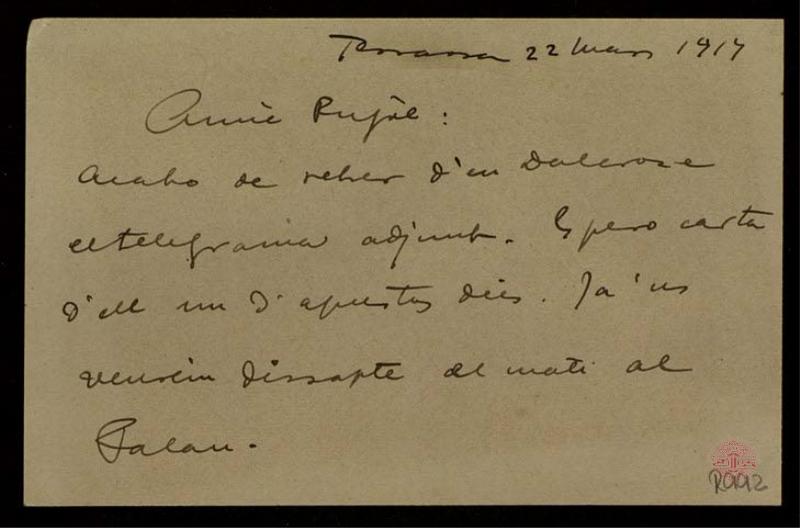 Terrassa 22 Mars 1917
Amic Pujol:
Acabo de rebre d'en Dalcroze
el telegrama adjunt. Espero carta
d'ell un d'aquestos dies. Ja 'ns
veurém dissapte al mati al
Palau.
R992